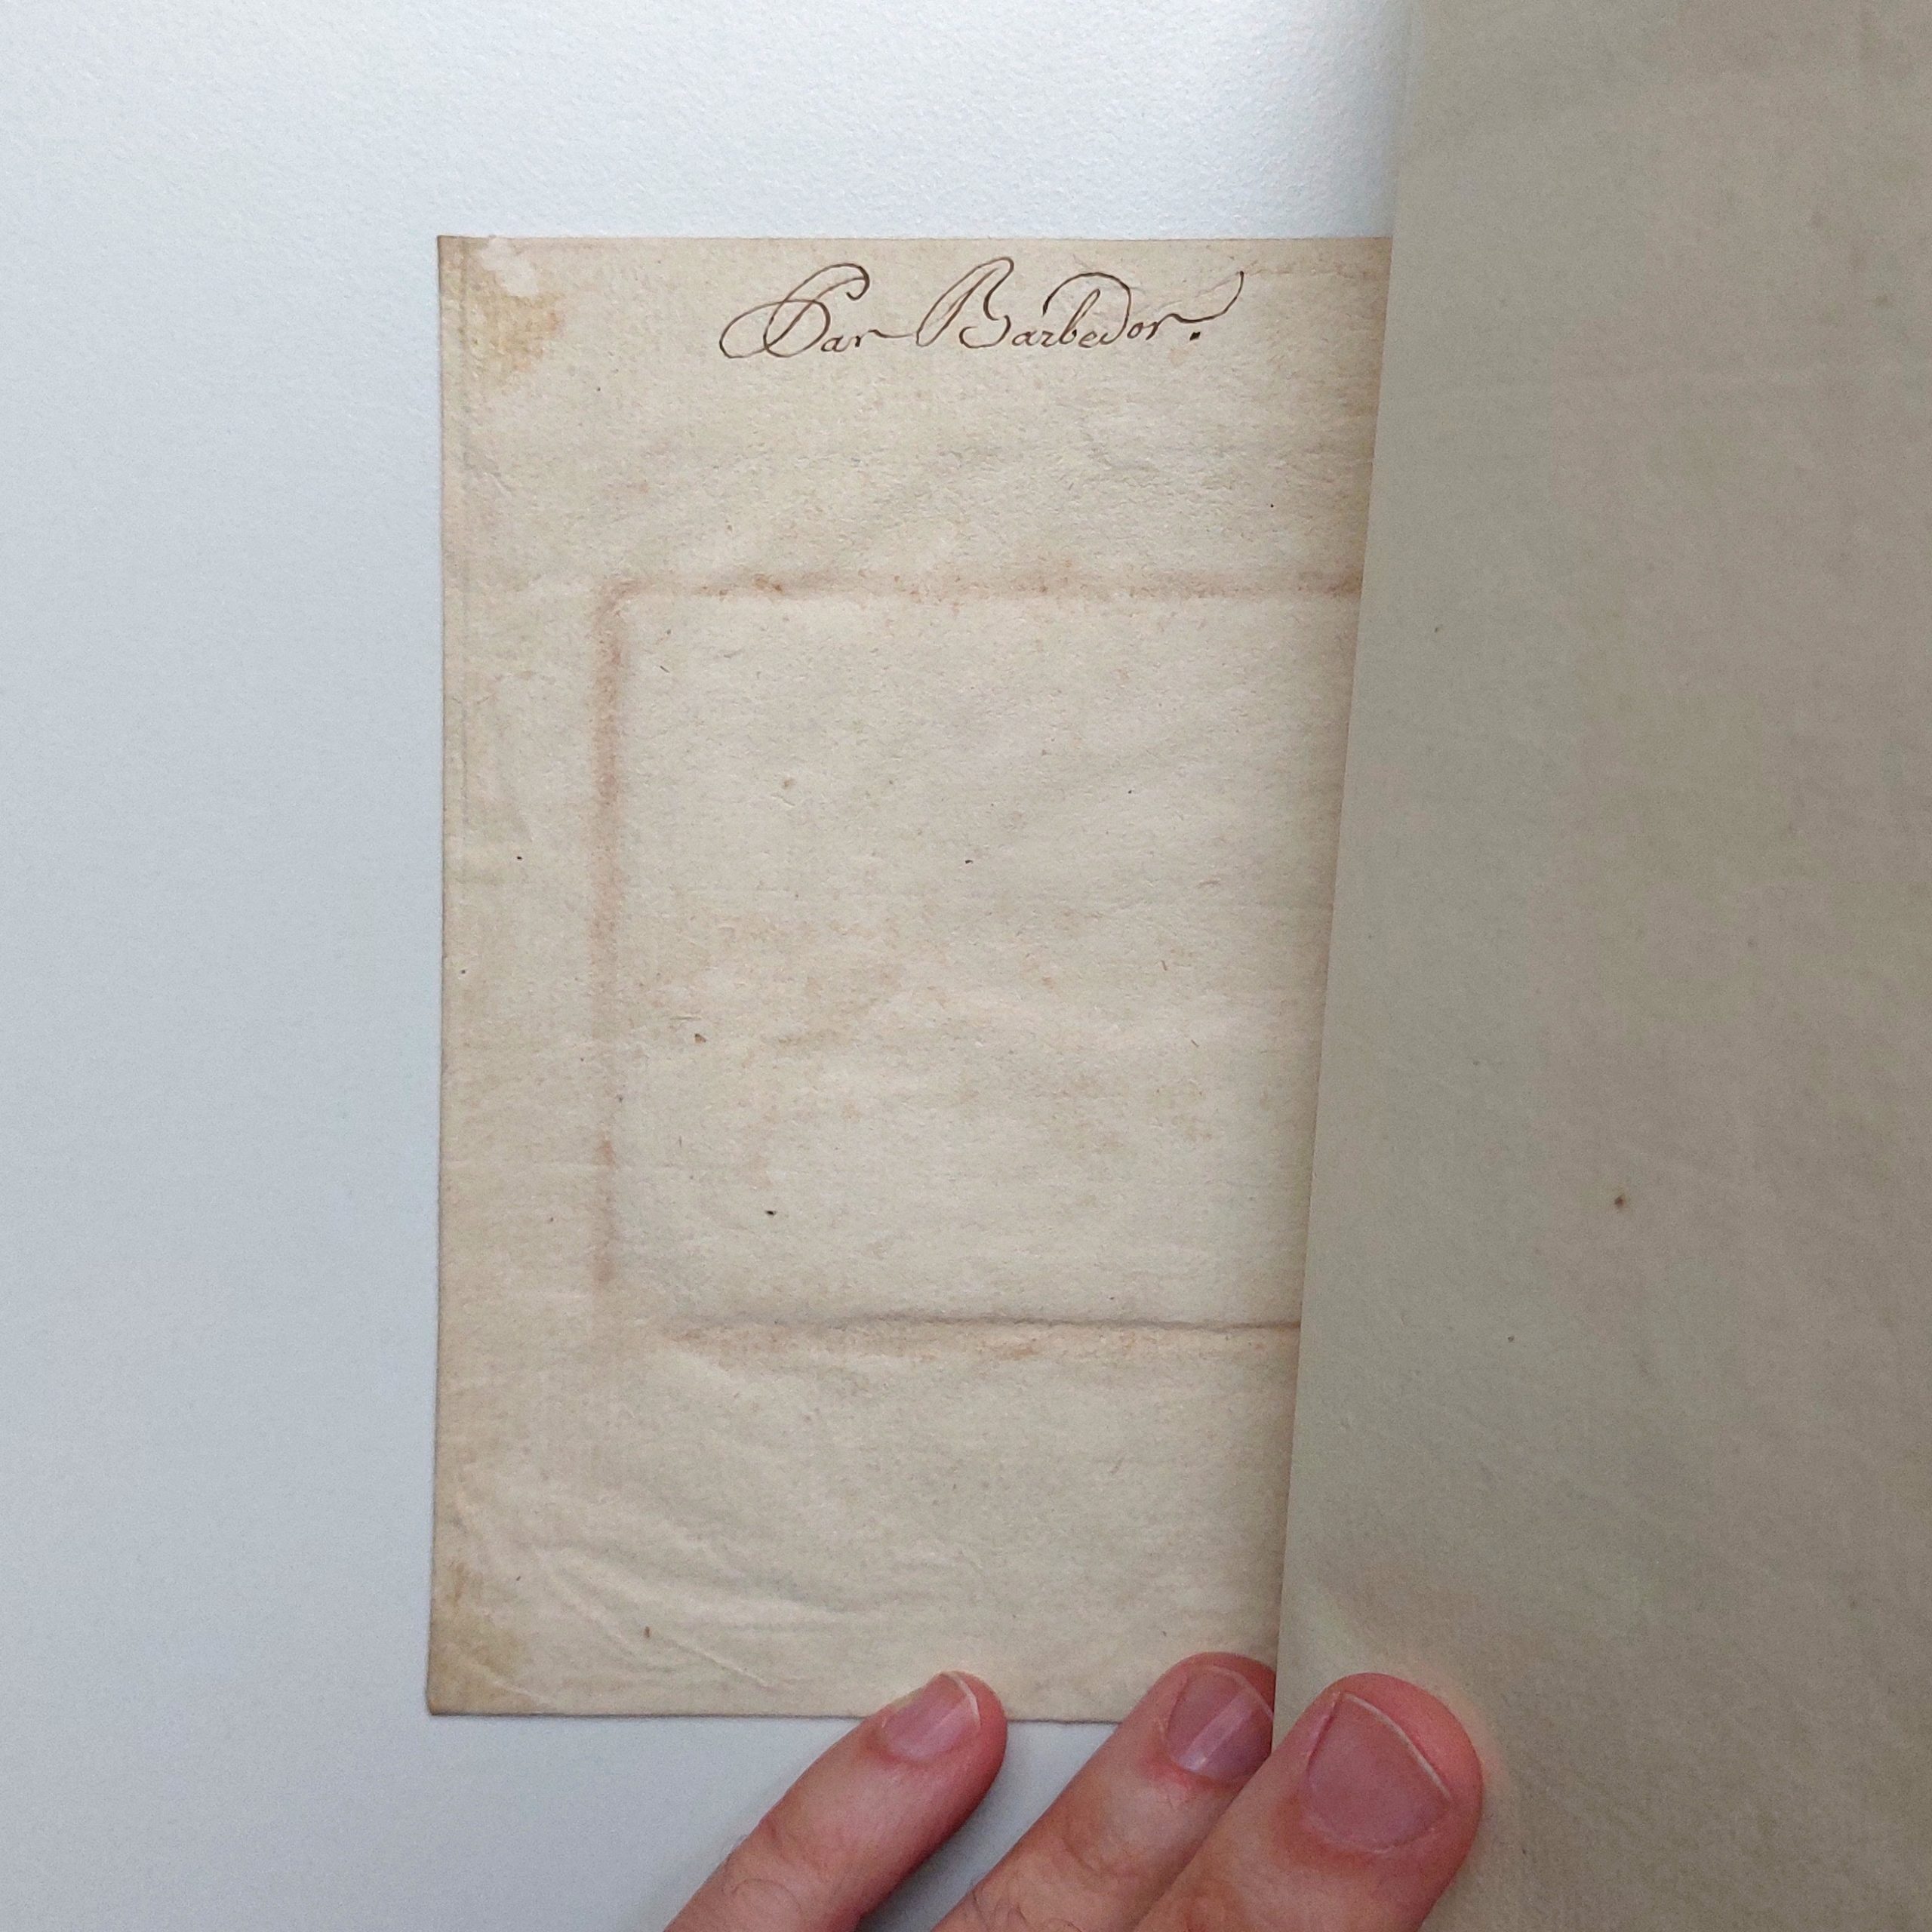 Par Barbedor.